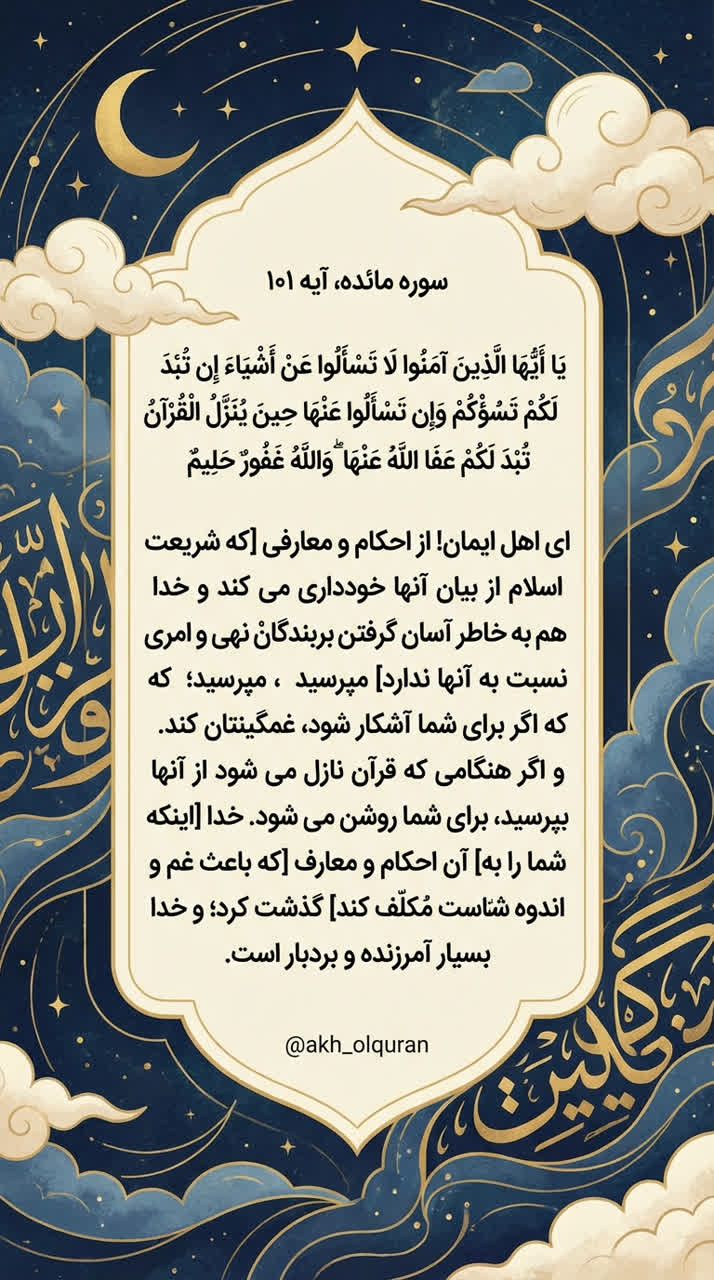 سوره مائده، آیه ۱۰۱
يَا أَيُّهَا الَّذِينَ آمَنُوا لَا تَسْأَلُوا عَنْ أَشْيَاءَ إِن تُبْدَ
لَكُمْ تَسُؤْكُمْ وَإِن تَسْأَلُوا عَنْهَا حِينَ يُنَزَّلُ الْقُرْآنُ
تُبْدَ لَكُمْ عَفَا اللَّهُ عَنْهَا ۗ وَاللَّهُ غَفُورٌ حَلِيمٌ
ای اهل ایمان! از احکام و معارفی [که شریعت
اسلام از بیان آنها خودداری می کند و خدا
هم به خاطر آسان گرفتن بربندگانْ نهی و امری
نسبت به آنها ندارد] مپرسید ، مپرسید؛ که
که اگر برای شما آشکار شود، غمگینتان کند.
و اگر هنگامی که قرآن نازل می شود از آنها
بپرسید، برای شما روشن می شود. خدا [اینکه
شما را به] آن احکام و معارف [که باعث غم و
اندوه شماست مُکلّف کند] گذشت کرد؛ و خدا
بسیار آمرزنده و بردبار است.
@akh_olquran